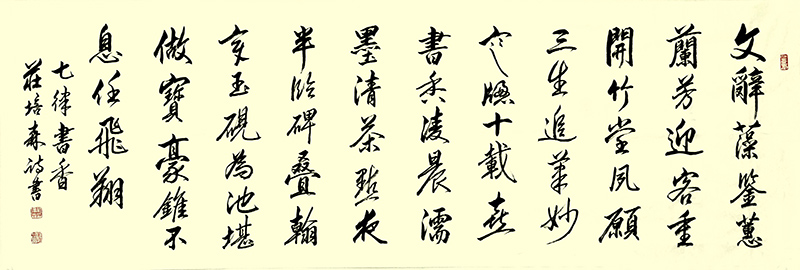 文辭藻鑒蕙
蘭芳迎客重
開竹堂夙願
三生追筆妙
寒牕十載喜
書香凌晨濡
墨清茶點夜
半臨碑疊翰
章玉硯為池堪
做寶豪錐不
息任飛翔
七律書香
莊培森詩書